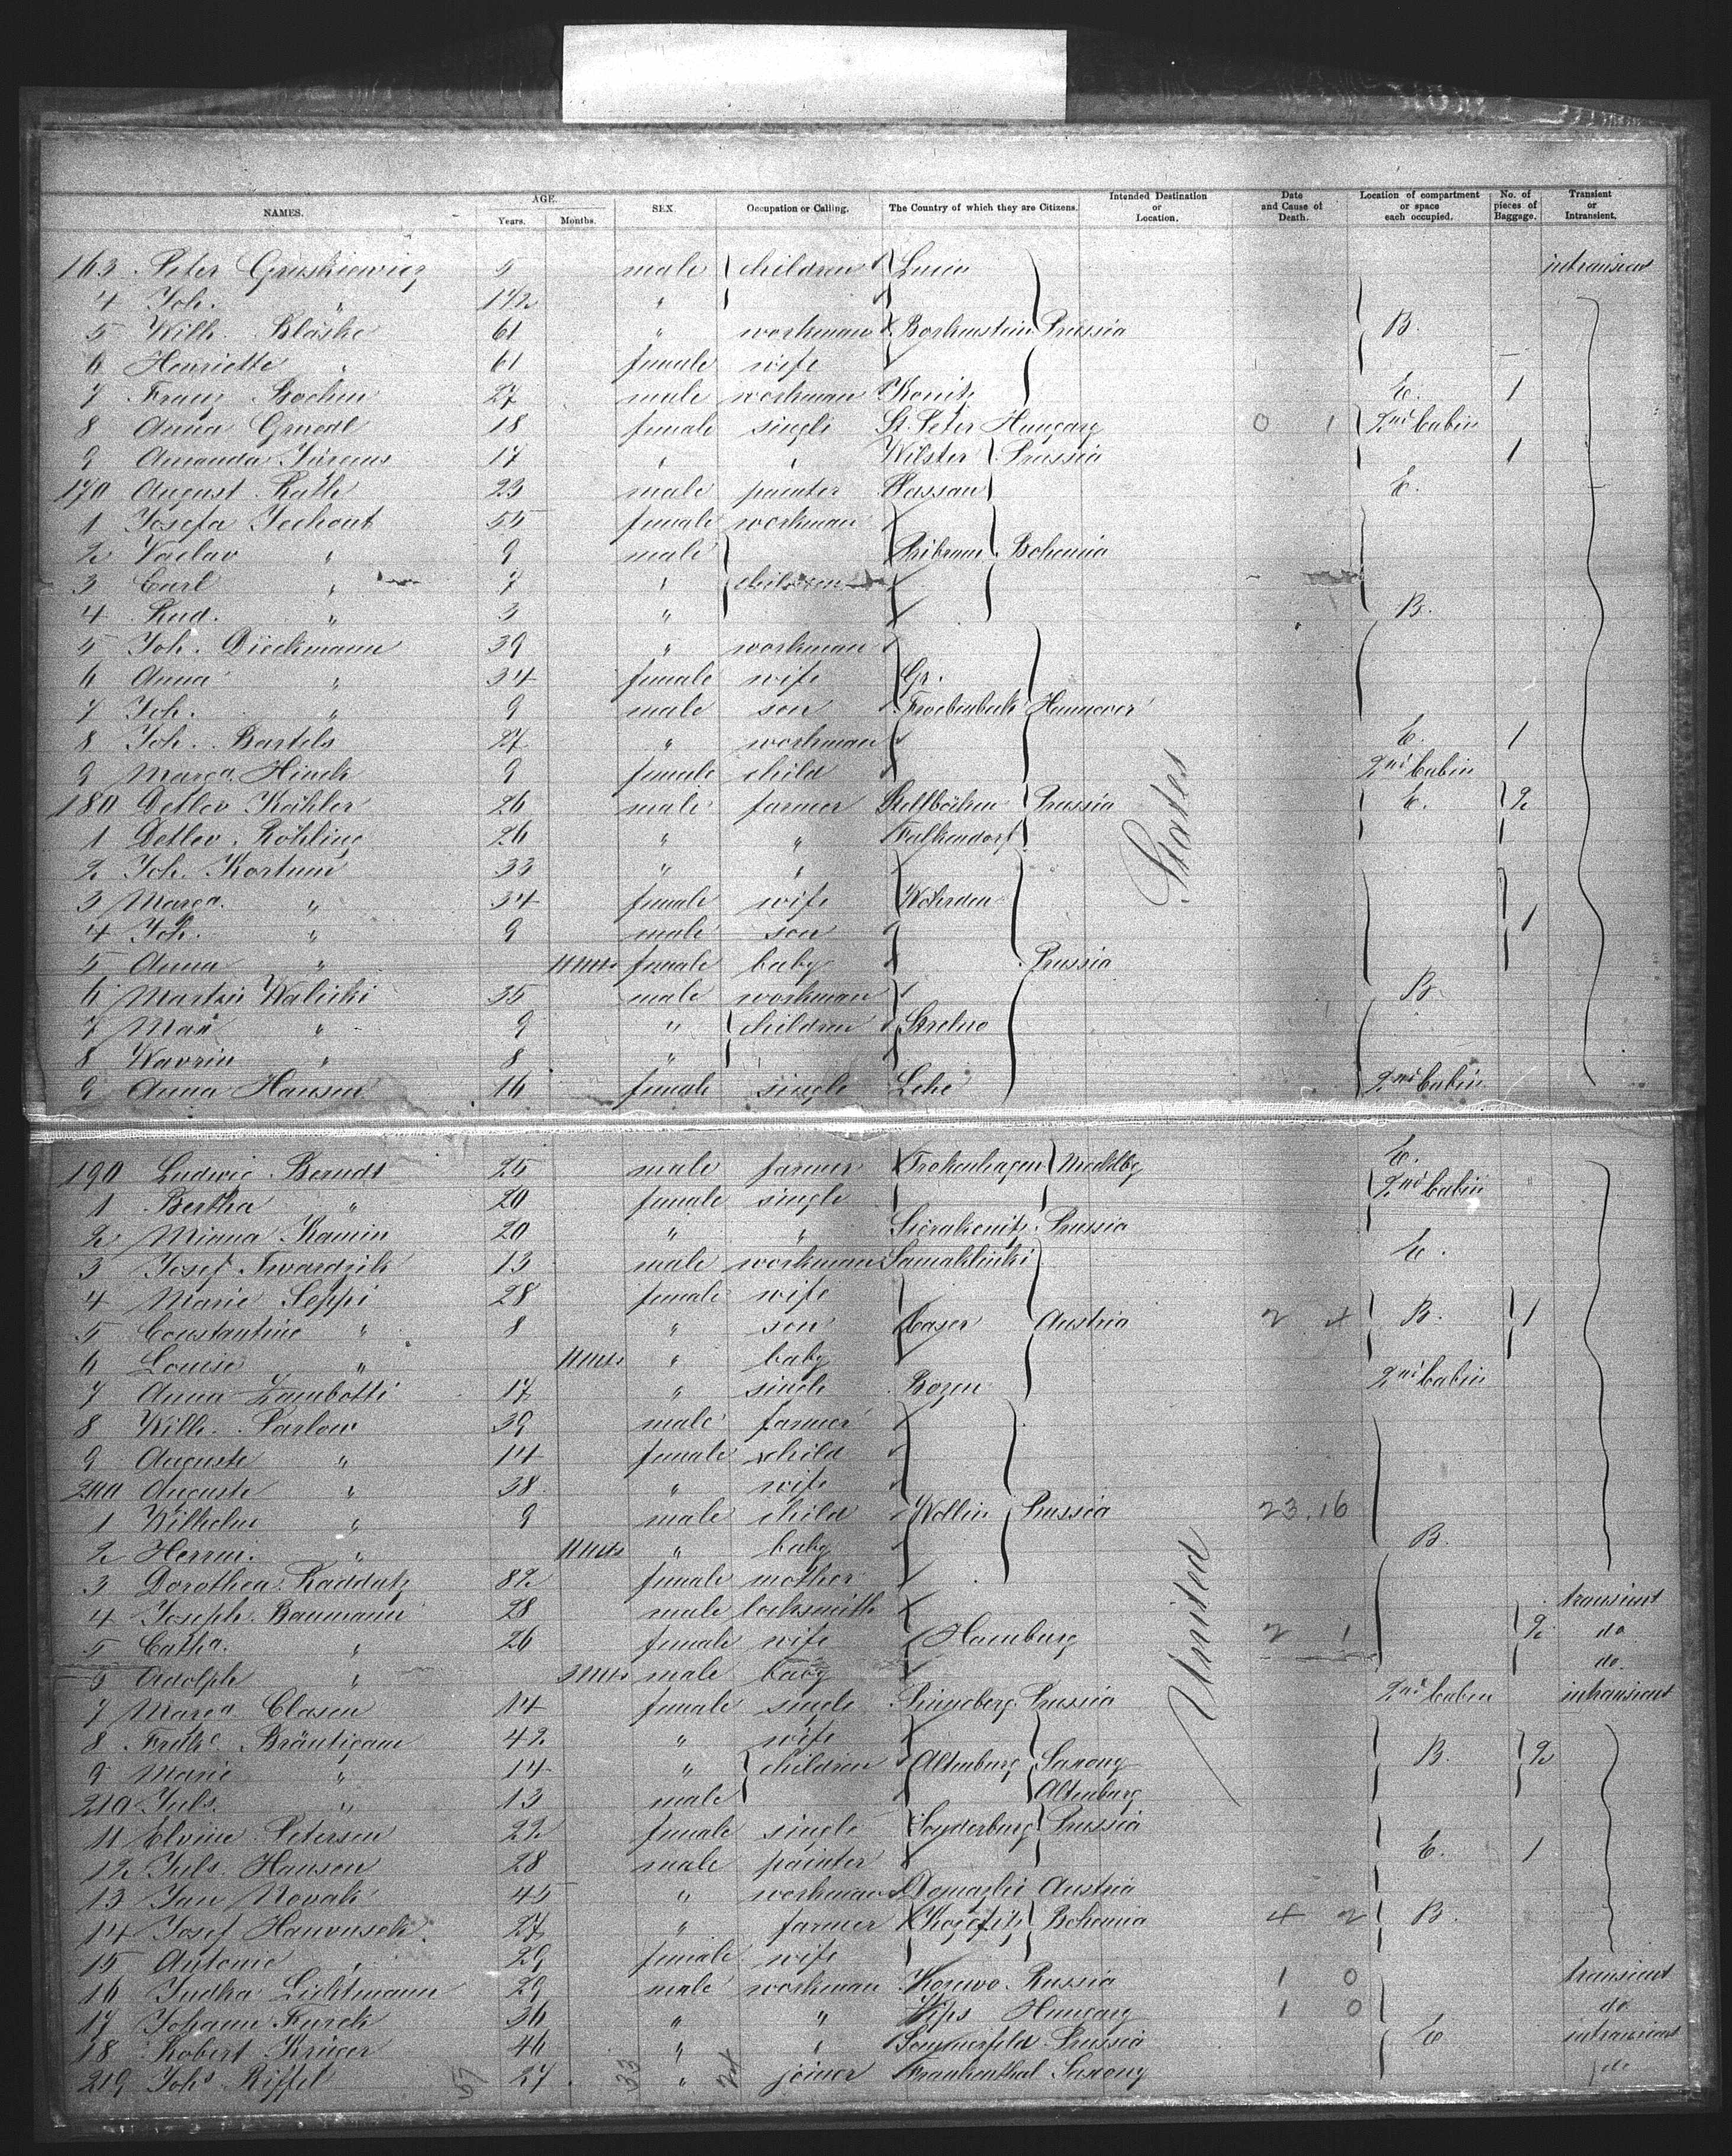 NAMES. AGE. Years. Months. SEX. Occupation or Calling. The Country of which they are Citizens. Intended Destination or Location. Date and Cause of Death. Location of compartment or space each occupied. No. of pieces of Baggage. Transient or Intransient.
163 Peter Gruskiewicz 5 male children intransient
4 Joh. " 1 1/2 "
5 Wilh. Bläske 61 " workman Prussia B.
6 Henriette " 61 female wife
7 Franz Bochin 27 male workman Konitz E. 1
8 Anna Gruedl 18 female single St. Peter Hungary 0 1 2nd Cabin
9 Amanda Jürgens 17 " " Wilster Prussia 1
170 August Rath 23 male painter Nassau E.
1 Josefa Jechout 55 female workman
2 Vaclav " 9 male Pribram Bohemia
3 Carl " 7 " children
4 Rud. " 3 " B.
5 Joh. Dieckmann 39 " workman
6 Anna " 34 female wife Gr.
7 Joh. " 9 male son Hannover
8 Joh. Bartels 27 " workman E. 1
9 Marga. Hinck 9 female child 2nd Cabin
180 Detlev Kähler 26 male farmer Prussia E. 2
1 Detlev Röhling 26 " " Falkendorf
2 Joh. Kortum 33 " "
3 Marga. " 34 female wife Wöhrden
4 Joh. " 9 male son 1
5 Anna " 11 mts female baby Prussia
6 Martin Walicki 35 male workman B
7 Max " 9 " children Strelno
8 Wavrin " 8 "
9 Anna Hansen 16 female single Lehe 2nd Cabin
190 Ludwig Berndt 25 male farmer Mecklbg E.
1 Bertha " 20 female single 2nd Cabin
2 Minna Kamin 20 " " Sierakowitz Prussia
3 Josef Twardzik 13 male workman E.
4 Marie Seppi 28 female wife
5 Constantine " 8 " son Austria 2 4 B. 1
6 Louise " 11 mts " baby
7 Anna Zambotti 17 " single Bozen 2nd Cabin
8 Wilh. Parlow 39 male farmer
9 Auguste " 14 female child
200 Auguste " 38 " wife
1 Wilhelm " 9 male child Wollin Prussia 23.16
2 Herm. " 11 mts " baby B.
3 Dorothea Raddatz 82 female mother
4 Joseph Baumann 28 male locksmith transient
5 Catha. " 26 female wife Hamburg 2 1 2 do
6 Adolph " 3 mts male baby do.
7 Marga Clasen 14 female single Pinneberg Prussia 2nd Cabin intransient
8 Frdke Bräutigam 42 " wife
9 Marie " 14 " children Altenburg Saxony B. 2
210 Juls. " 13 male Altenburg
11 Elvine Petersen 22 female single Sonderburg Prussia
12 Juls. Hansen 28 male painter E. 1
13 Jan Novak 45 " workman Domazlic Austria
14 Josef Hanousek 27 " farmer Bohemia 4 2 B.
15 Antonie " 29 female wife
16 Judka Lichtmann 29 male workman Russia 1 0 transient
17 Johann Furch 36 " " Zips Hungary 1 0 do
18 Robert Krüger 46 " " Sommerfeld Prussia E intransient
219 Johs Riffel 27 " joiner Frankenthal Saxony do
United States
57 33 24